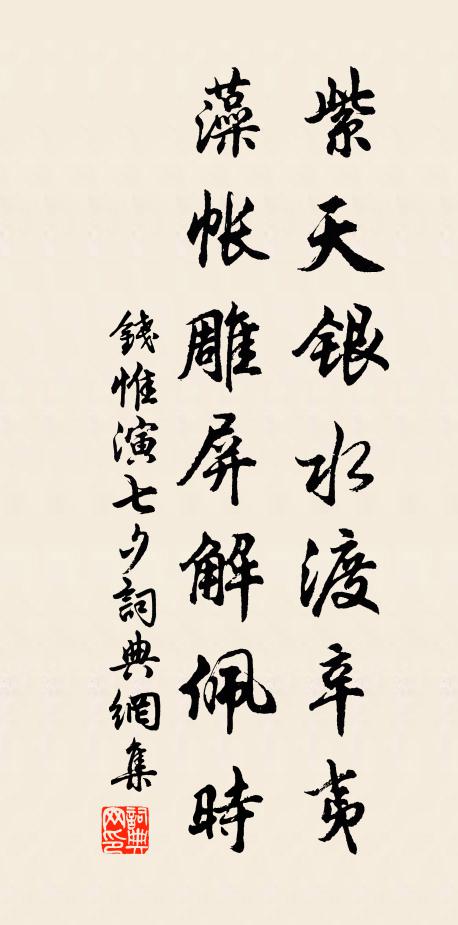 紫天銀水渡辛夷
藻帳雕屏解佩時
錢惟演七夕詞典網集
詞典網印